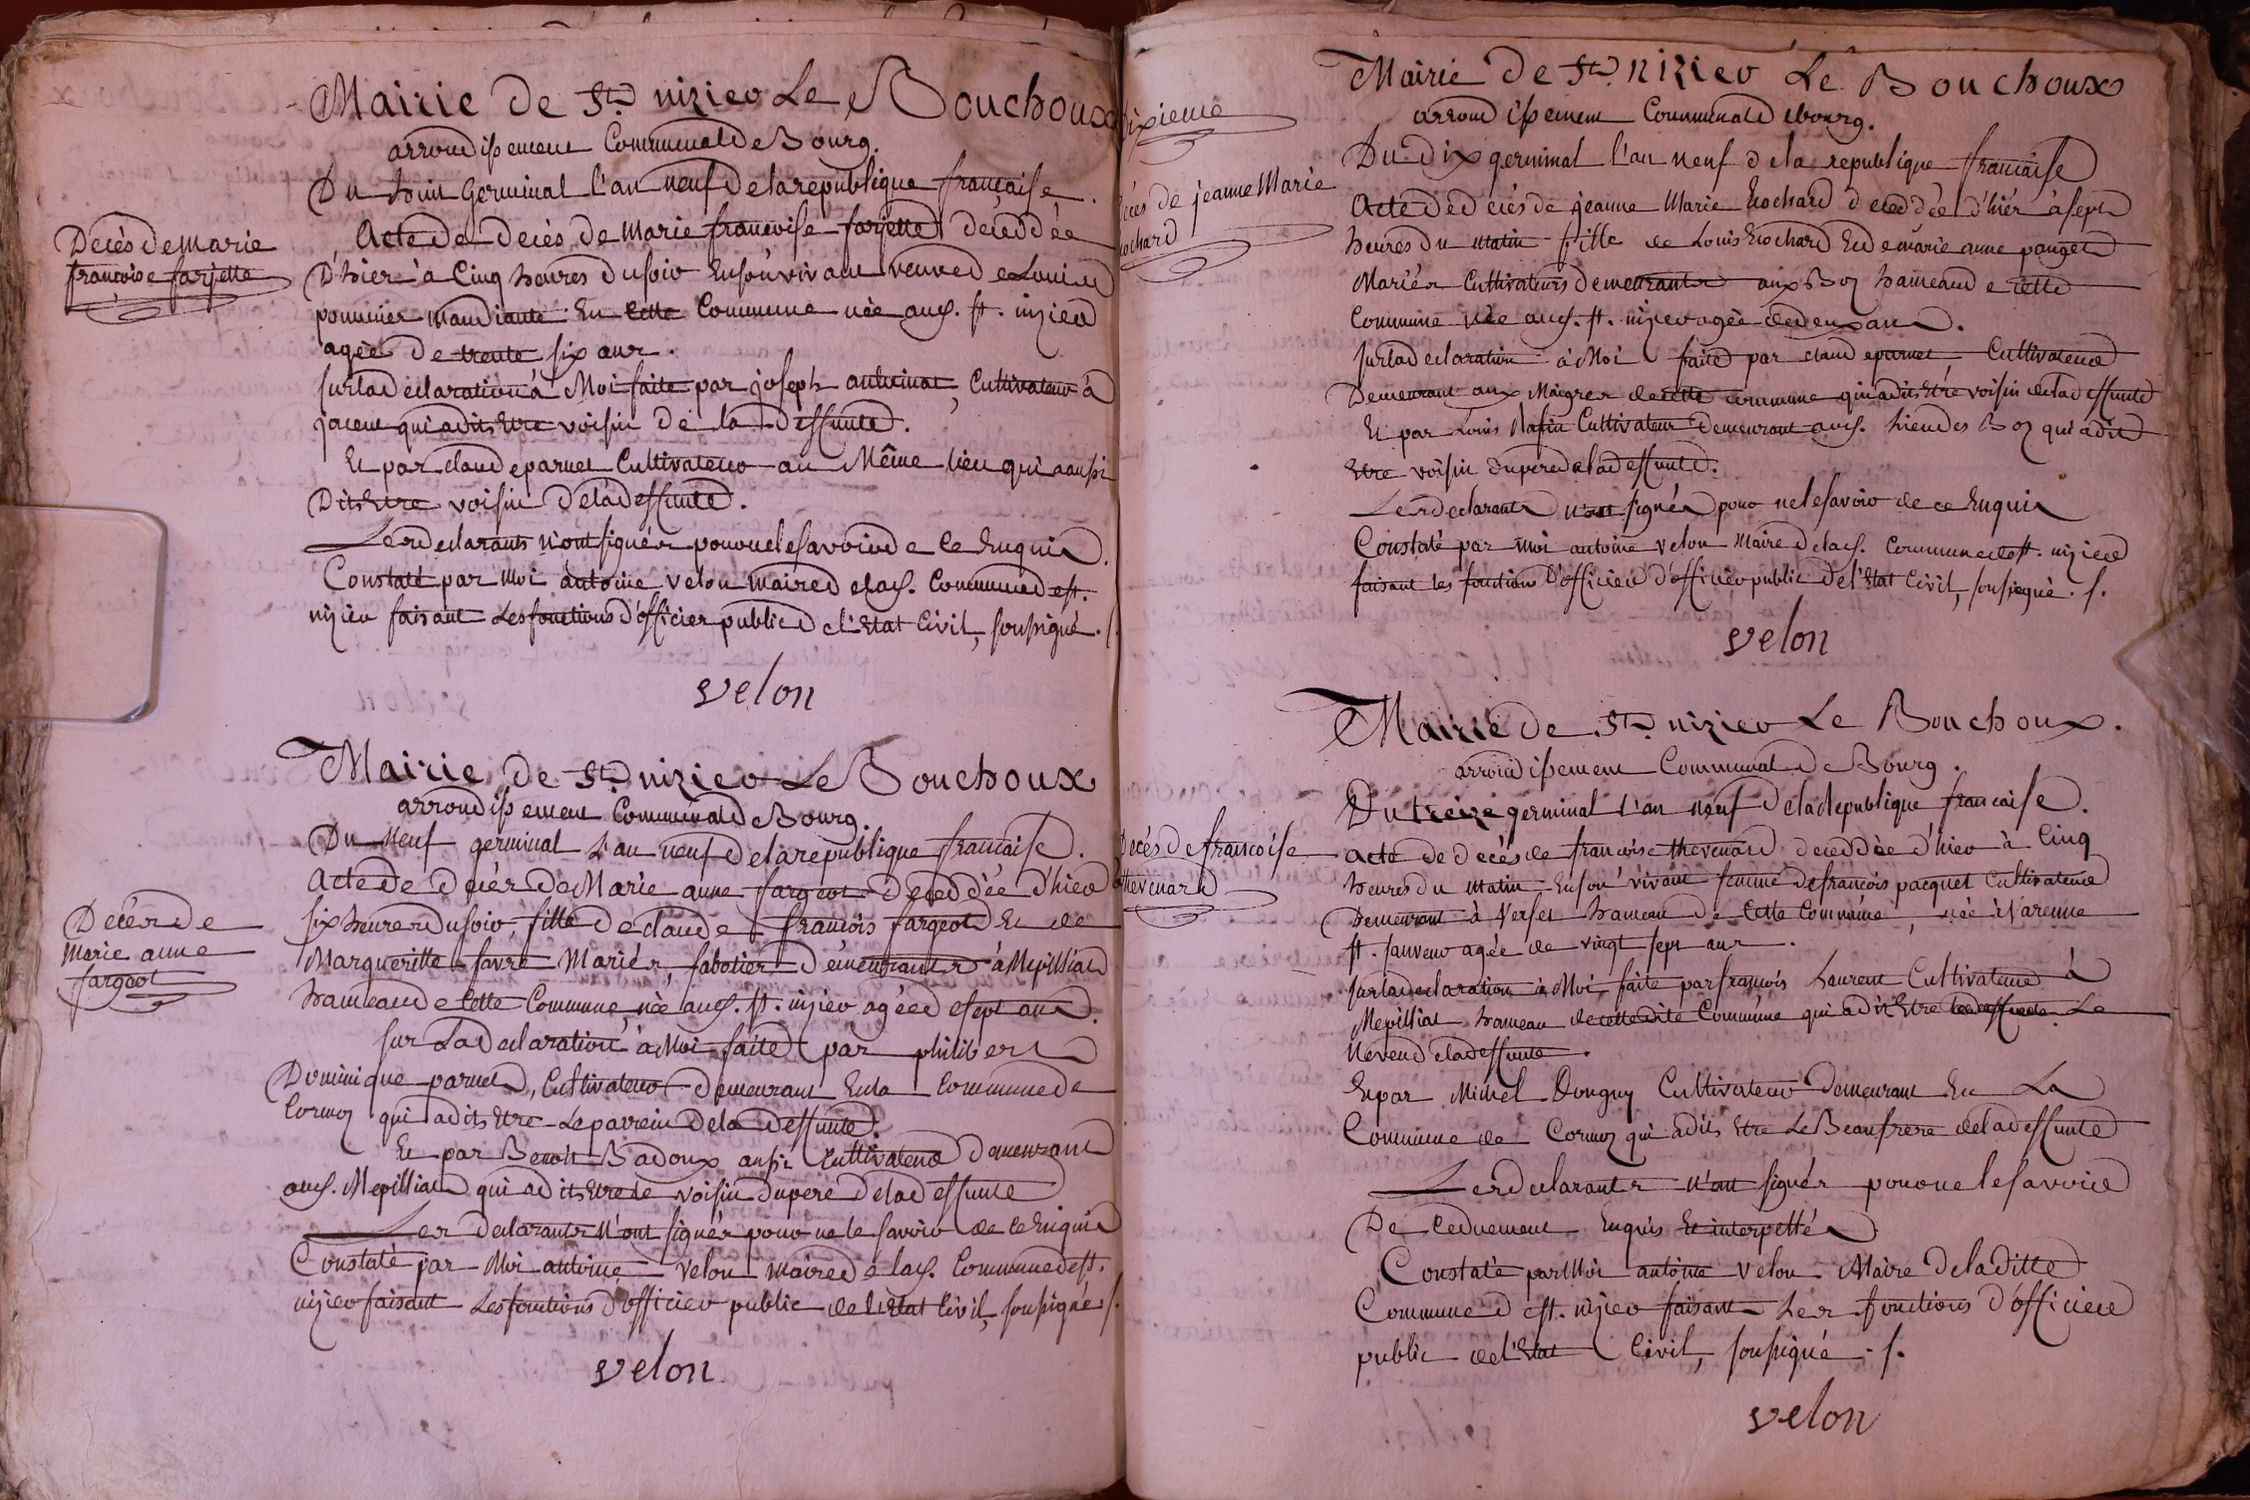 Mairie de St. nizier Le Bouchoux
arrondissement Communal de Bourg.
Du huit Germinal l'an neuf de la republique française.
Decès de Marie
françoise farjette
Acte de decès de Marie françoise farjette deceddée
D'hier à Cinq heures du soir En son vivant veuve de Louis
pommier mandiante En Cette Commune née aud. St. nizier
agée de trente six ans.
sur la declaration à Moi faite par joseph antoinat, Cultivateur à
qui a dit Etre voisin de la deffunte.
Et par claude parnet Cultivateur au Même lieu qui aussi
Dit Etre voisin de la deffunte.
Les declarants n'ont signés pour ne le savoir de ce Enquis.
Constaté par Moi antoine velon maire de lad. Commune de st.
nizier faisant Les fonctions d'officier public de l'Etat Civil, soussigné. /.
velon
Mairie de St. nizier Le Bouchoux
arrondissement Communal de Bourg.
Du Neuf germinal L'an neuf de la republique francaise.
Decès de
Marie anne
fargeot
Acte de decès de Marie anne fargeot deceddée d'hier
six heures du soir, fille de claude francois fargeot Et de
Margueritte favre Mariés, sabotier demeurants à Mepilliat
hameau de Cette Commune, née aud. st. nizier agée de sept ans.
sur La declaration à Moi faite par philibert
Dominique parnet, Cultivateur demeurant En la Commune de
Cormoz qui a dit Etre Le parrein de la deffunte.
Et par Benoit Badoux aussi Cultivateur demeurant
aud. Mepilliat qui a dit Etre le voisin du pere de la deffunte
Les declarants n'ont signés pour ne le savoir de ce Enquis
Constaté par Moi antoine velon maire de lad. Commune de st.
nizier faisant Les fonctions d'officier public de l'Etat Civil, soussigné. /.
velon
sixieme
Mairie de St. nizier Le Bouchoux
arrondissement Communal de bourg.
Du dix germinal l'an neuf de la republique francaise
decès de jeanne Marie
Acte de decès de jeanne Marie deceddée d'hier à sept
heures du matin fille de Louis Et de marie anne panget
Mariés Cultivateurs demeurants aux Boz hameau de cette
Commune née aud. st. nizier agée de deux ans.
sur la declaration à Moi faite par claude parnet Cultivateur
Demeurant aux Maigres de cette commune qui a dit Etre voisin de la deffunte
Et par Louis Cultivateur demeurant aud. lieu des Boz qui a dit
Etre voisin du pere de la deffunte.
Les declarants n'ont signés pour ne le savoir de ce Enquis
Constaté par moi antoine velon Maire de lad. Commune de st. nizier
faisant les fonctions d'officier d'officier public de l'Etat Civil, soussigné. /.
velon
Mairie de St. nizier Le Bouchoux.
arrondissement Communal de Bourg.
Du treize germinal l'an neuf de la Republique francaise.
Decés de francoise
thevenard
Acte de decés de francoise thevenard deceddée d'hier à Cinq
heures du matin En son vivant femme de francois pacquet Cultivateur
Demeurant à Verset hameau de Cette Commune, née à Varenne
st. sauveur agée de vingt sept ans.
sur la declaration à Moi faite par francois Laurent Cultivateur à
Mepilliat hameau de cette dite Commune qui a dit Etre Le
Neveu de la deffunte.
Et par Michel Donguy Cultivateur demeurant En La
Commune de Cormoz qui a dit Etre Le Beaufrere de la deffunte
Les declarants n'ont signés pour ne le savoir
De ceduement Enquis Et interpellés
Constaté par Moi antoine velon Maire de la ditte
Commune de st. nizier faisant Les fonctions d'officier
public de l'Etat Civil, soussigné. /.
velon